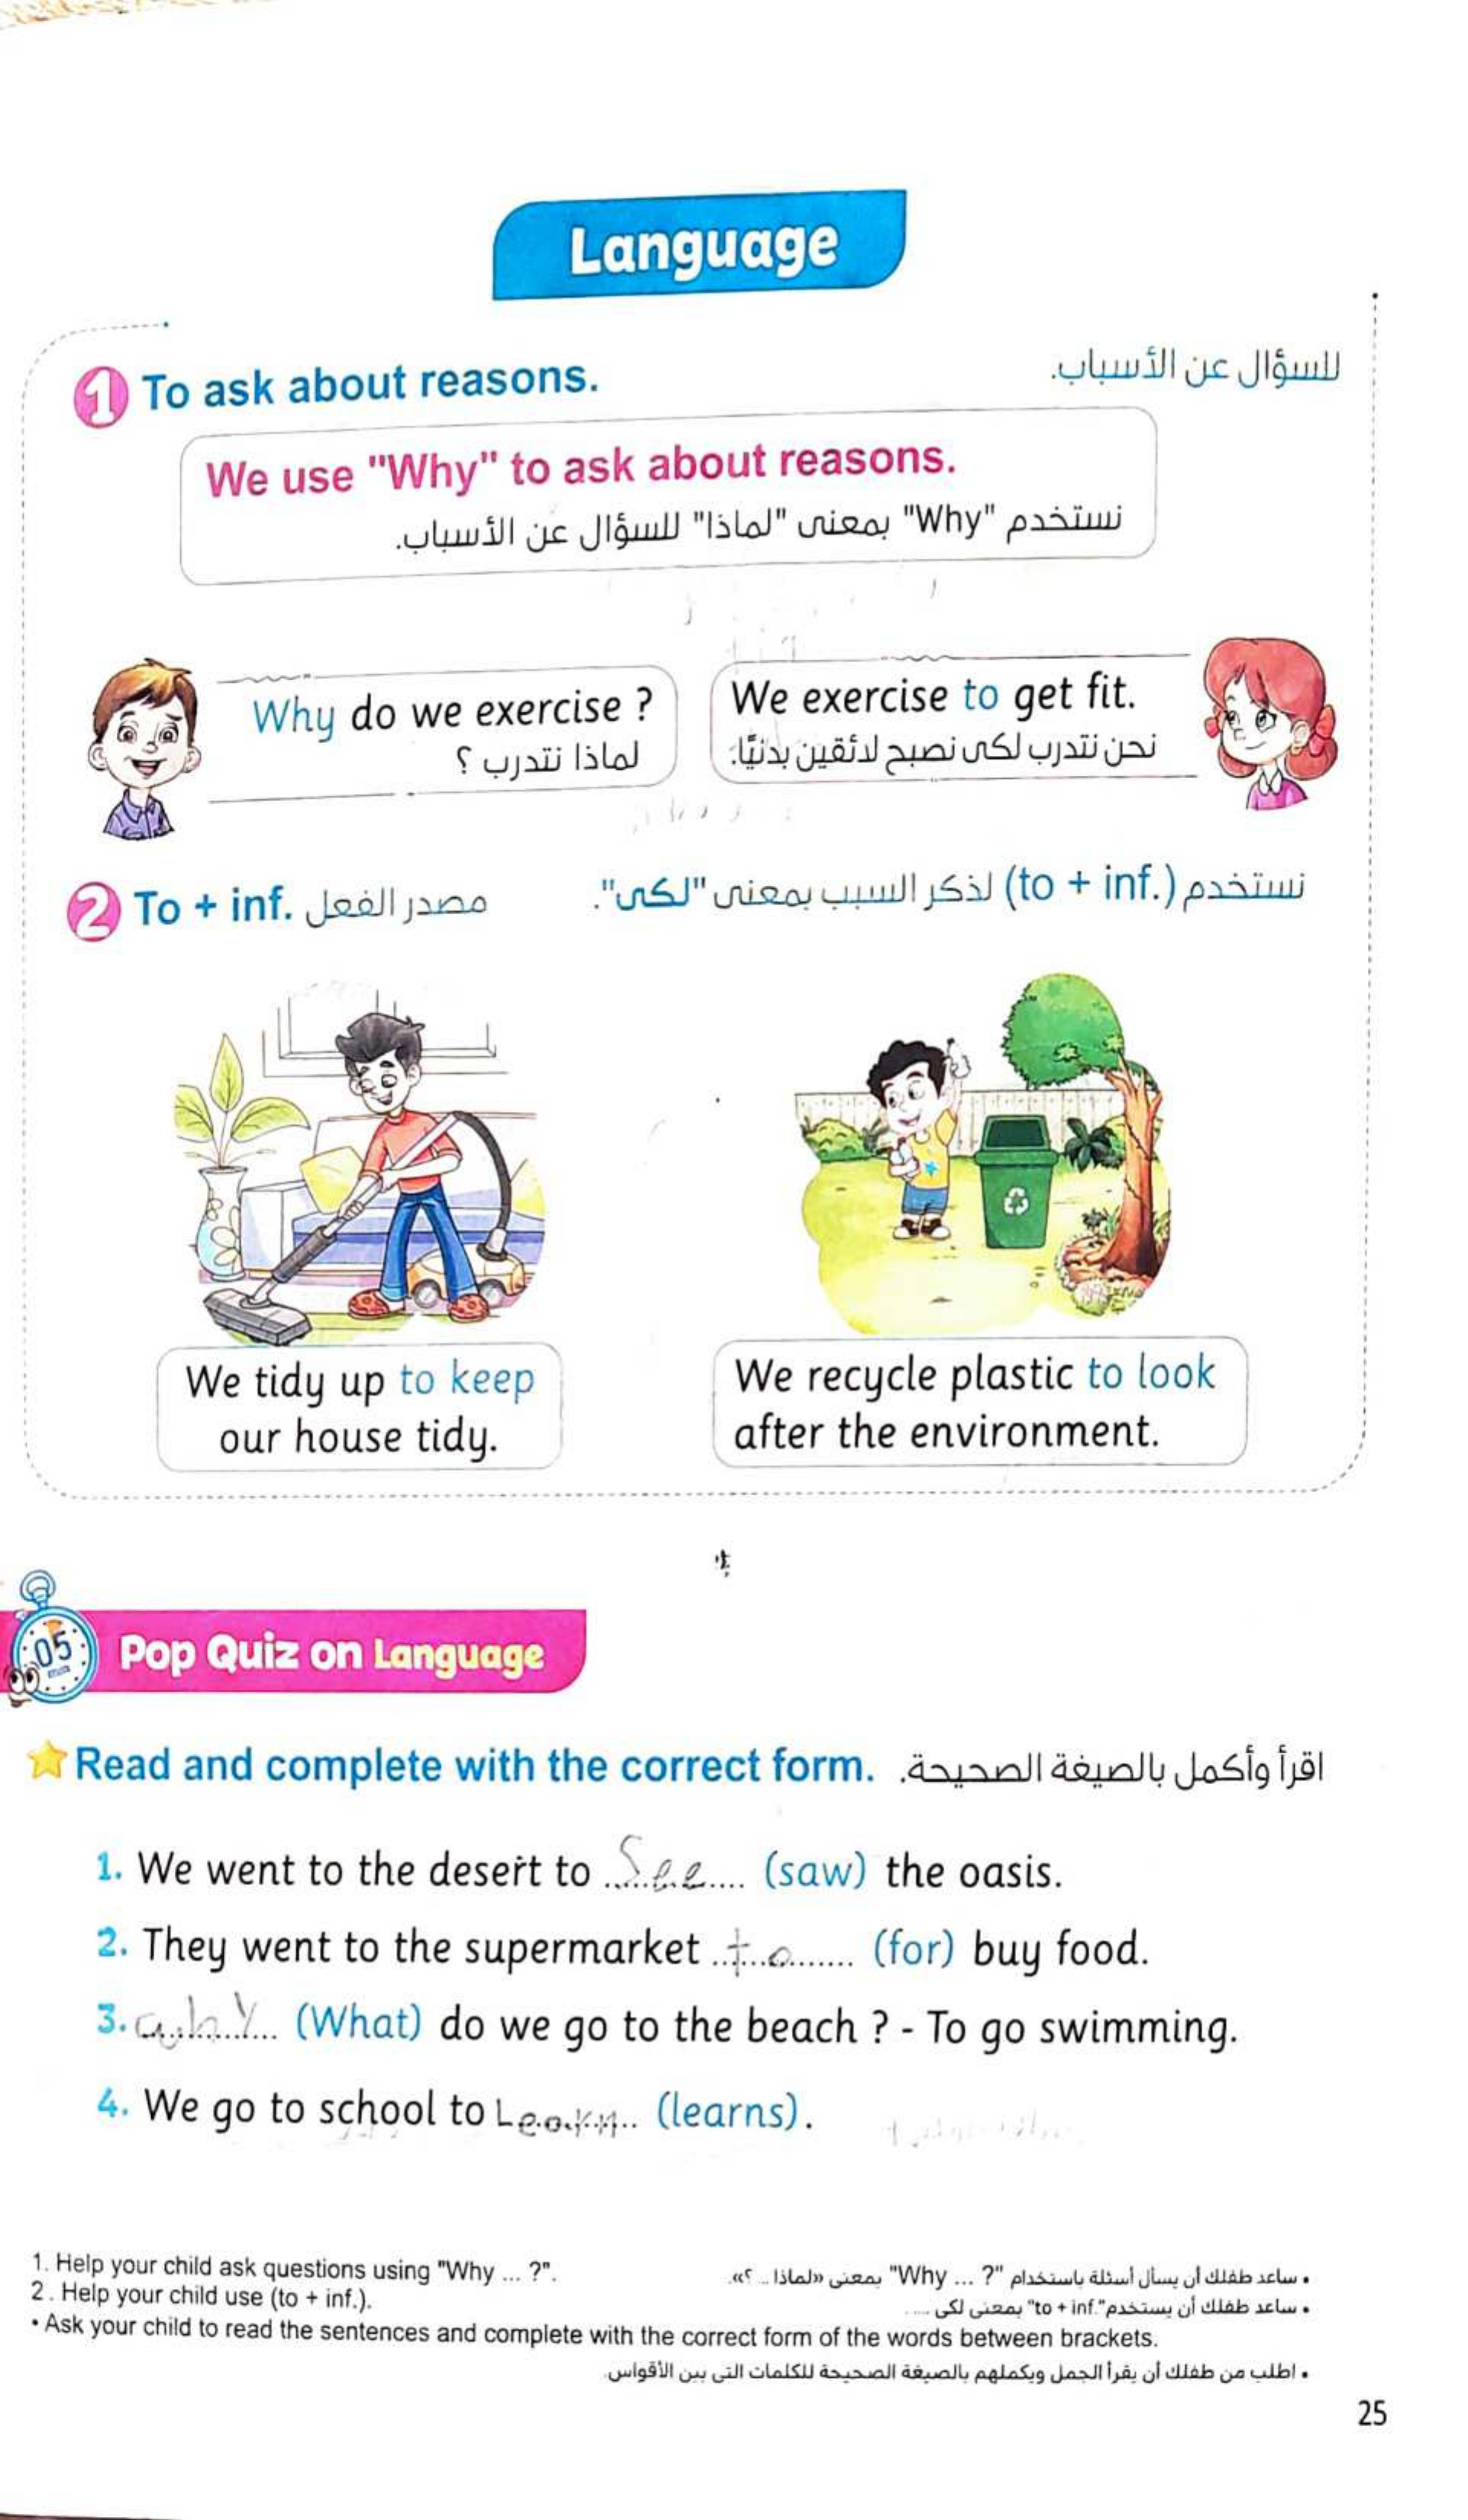 Language
1 To ask about reasons. للسؤال عن الأسباب.
We use "Why" to ask about reasons.
نستخدم "Why" بمعنى "لماذا" للسؤال عن الأسباب.
Why do we exercise ?
لماذا نتدرب ؟
We exercise to get fit.
نحن نتدرب لكى نصبح لائقين بدنيًا.
2 To + inf. مصدر الفعل نستخدم (to + inf.) لذكر السبب بمعنى "لكى".
We tidy up to keep
our house tidy.
We recycle plastic to look
after the environment.
05 Pop Quiz on Language
Read and complete with the correct form. اقرأ وأكمل بالصيغة الصحيحة.
1. We went to the desert to See (saw) the oasis.
2. They went to the supermarket to (for) buy food.
3. why (What) do we go to the beach ? - To go swimming.
4. We go to school to Learn (learns).
1. Help your child ask questions using "Why ... ?".
• ساعد طفلك أن يسأل أسئلة باستخدام "Why ... ?" بمعنى «لماذا .. ؟».
2. Help your child use (to + inf.).
• ساعد طفلك أن يستخدم "to + inf." بمعنى لكى ....
• Ask your child to read the sentences and complete with the correct form of the words between brackets.
• اطلب من طفلك أن يقرأ الجمل ويكملهم بالصيغة الصحيحة للكلمات التى بين الأقواس.
25